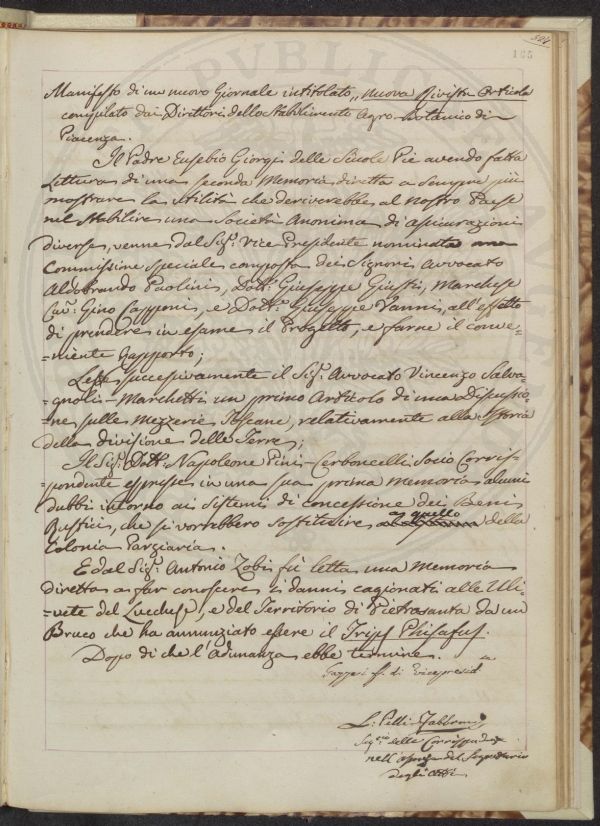 524
165
Manifesto di un nuovo Giornale intitolato „ nuova Rivista Articolo
compilato dai Direttori dello Stabilimento Agro-botanico di
Piacenza.
Il Padre Eusebio Giorgi delle Scuole Pie avendo fatta
Lettura di una seconda Memoria diretta a sempre più
mostrare la utilità che deriverebbe al nostro Paese
nel stabilire una Società Anonima di assicurazioni
diverse, venne dal Sigr. Vice Presidente nominata una
Commissione speciale composta dei Signori Avvocato
Aldobrando Paolini, Dottr. Giuseppe Giusti, Marchese
Cavr. Gino Capponi, e Dottr. Giuseppe Vanni, all'effetto
di prendere in esame il Progetto, e farne il conve-
=niente Rapporto;
Lesse successivamente il Sigr. Avvocato Vincenzo Salva-
=gnoli-Marchetti un primo Articolo di una Discussio-
ne sulle Mezzerie Toscane, relativamente alla Storia
della divisione delle Terre;
Il Sigr. Dottr. Napoleone Pini-Cerboncelli Socio Corris-
pondente espresse in una sua prima Memoria alcuni
dubbi intorno ai sistemi di concessione dei Beni
Rustici, che si vorrebbero sostituire a quello della
Colonia Parziaria.
E dal Sigr. Antonio Zobi fù letta una Memoria
diretta a far conoscere i danni cagionati alle Uli-
=vete del Lucchese, e del Territorio di Pietrasanta da un
Bruco che ha annunziato essere il Trips Phisapus.
Dopo di che l'Adunanza ebbe termine.
Gazzeri f. di Vicepresid.
L. Pelli-Fabbroni
Segrio delle Corrispondze
nell'assenza del Segretario
degli Atti